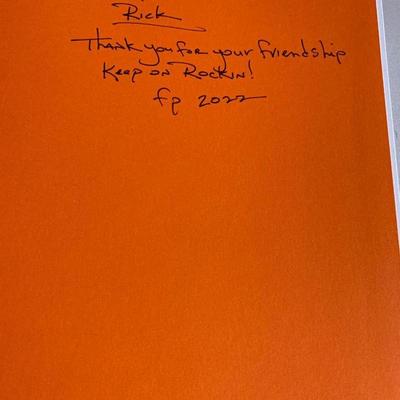 Rick
Thank you for your friendship
Keep on Rockin!
fp 2022